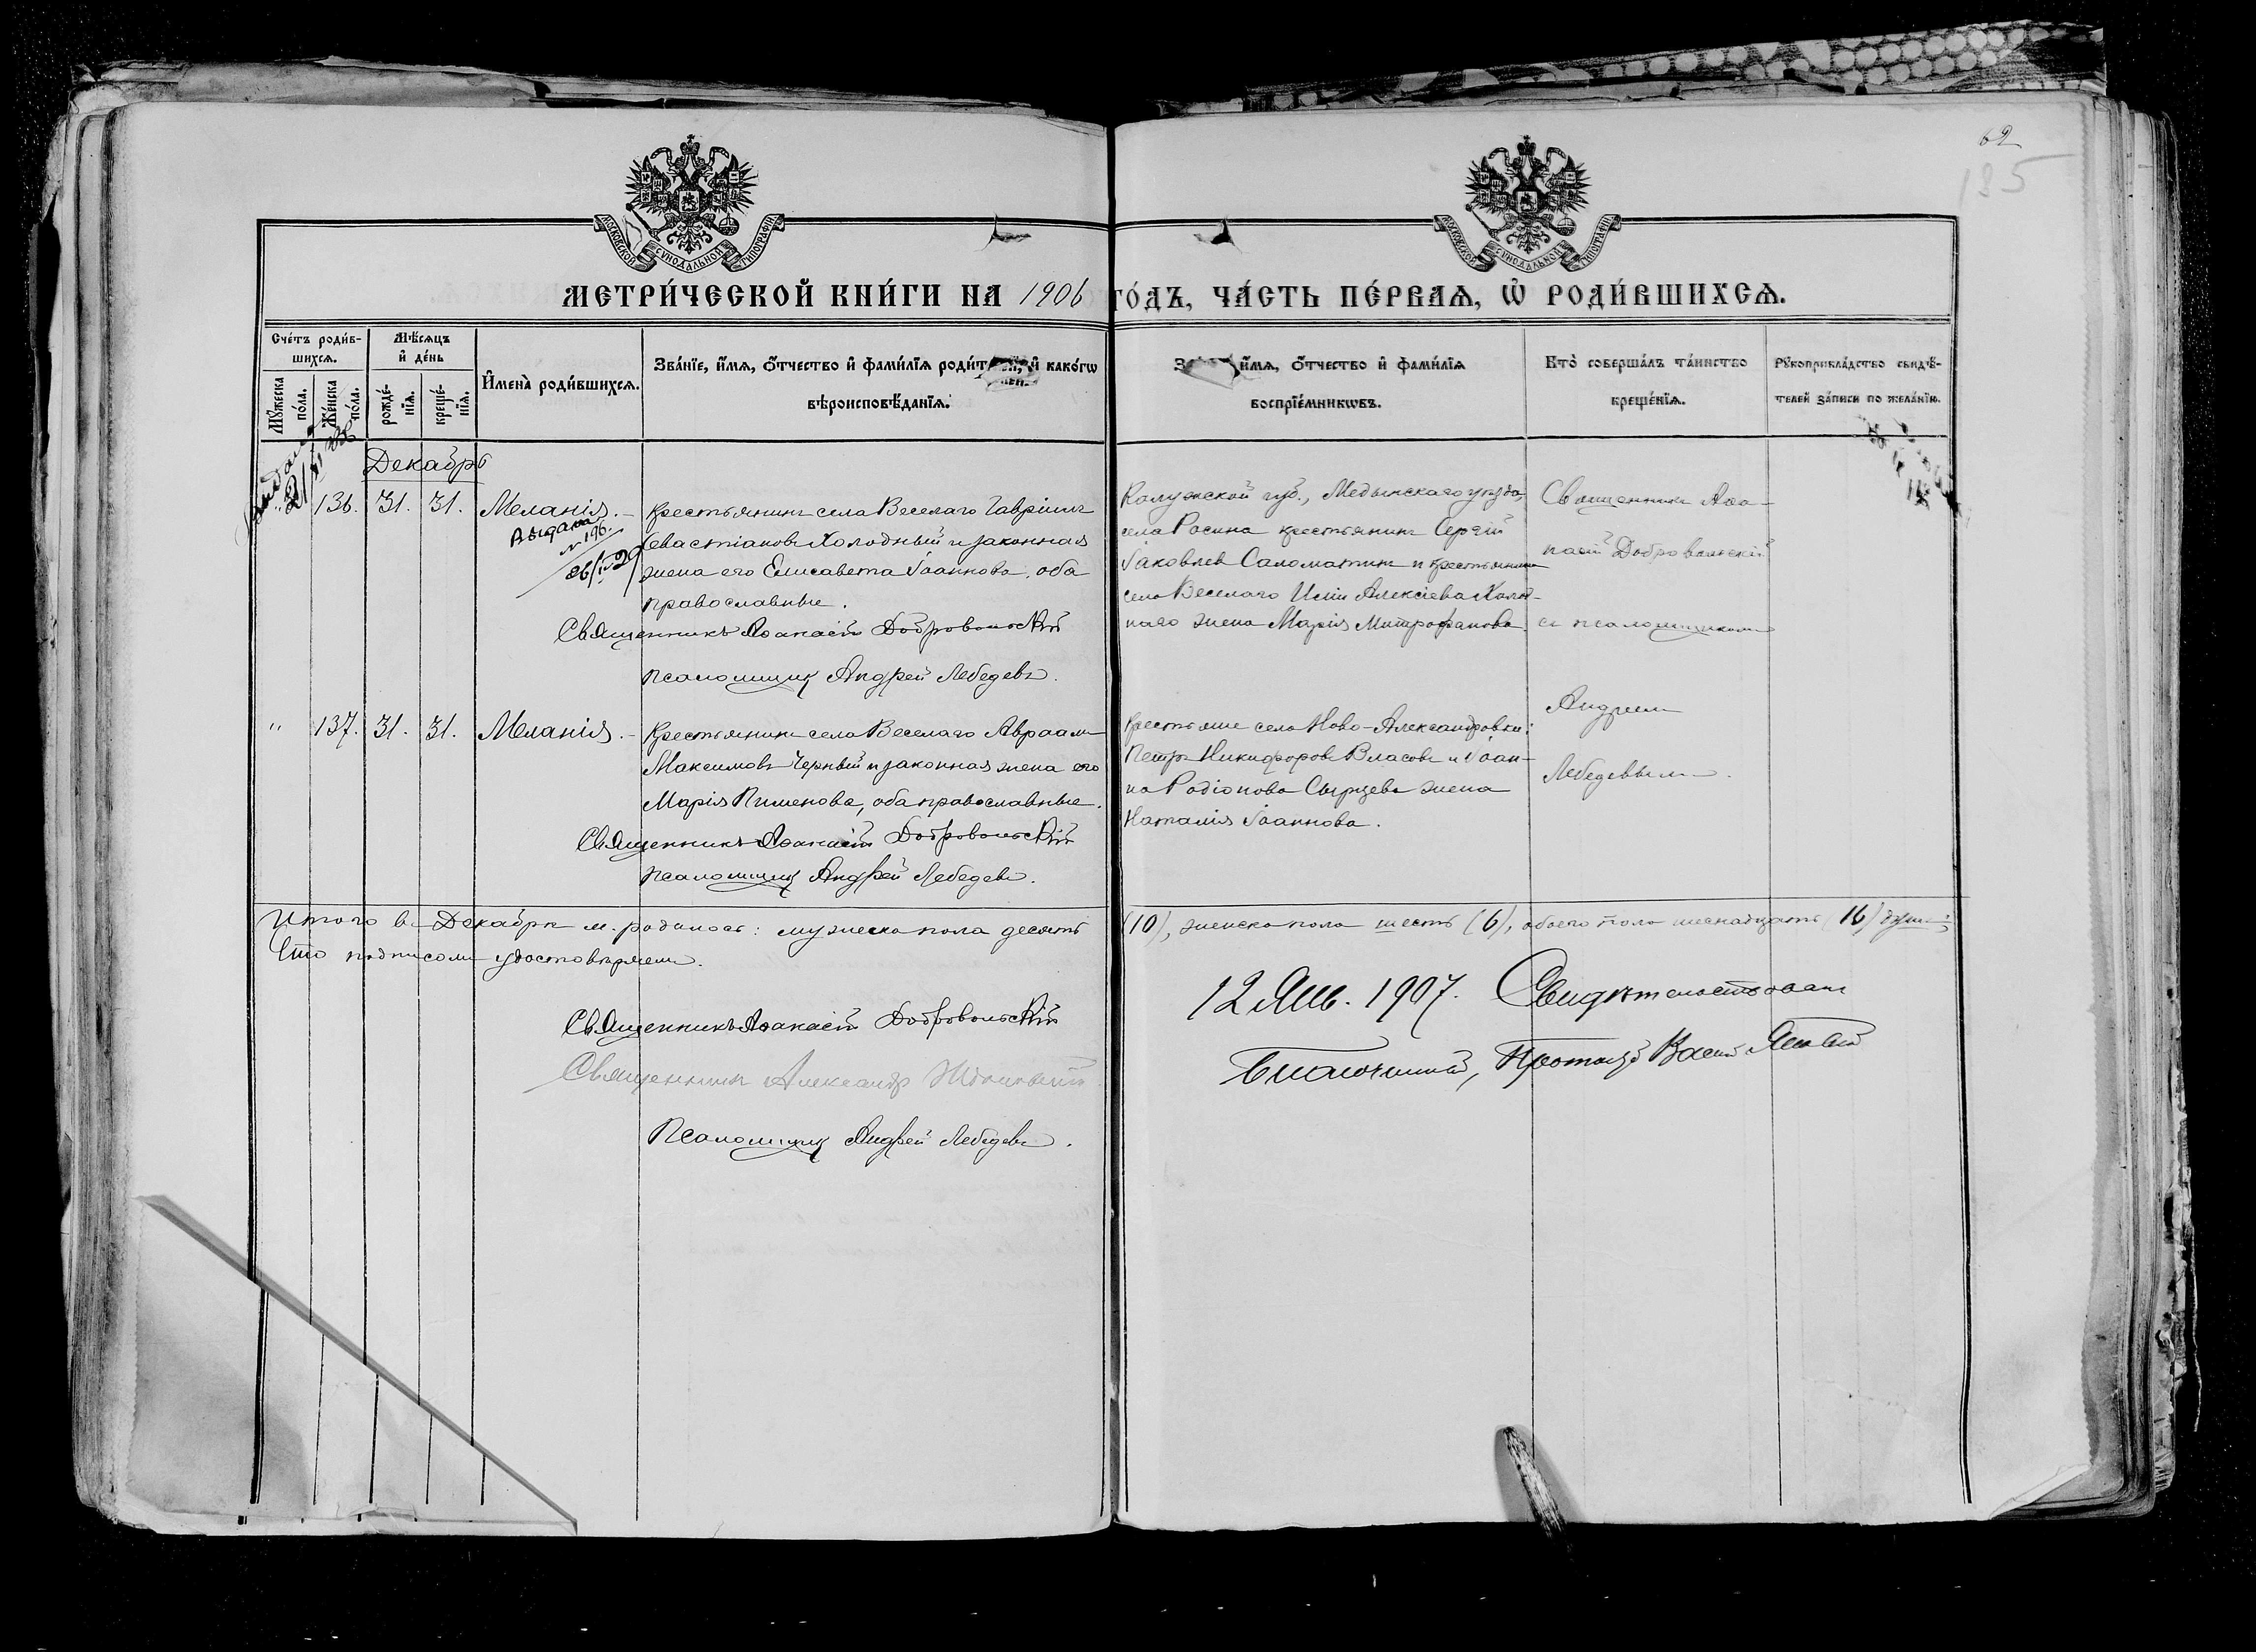 62
195
МОСКОВСКОЙ СУНОДАЛЬНОЙ ТИПОГРАФІИ
МОСКОВСКОЙ СУНОДАЛЬНОЙ ТИПОГРАФІИ
МЕТРИ́ЧЕСКОЙ КНИ́ГИ НА 1906 ГО́ДЪ, ЧА́СТЬ ПЕ́РВАѦ, Ѡ҆ РОДИ́ВШИХСѦ.
Сче́тъ роди́в-
шихсѧ.
Мꙋ́жеска
по́ла.
Же́нска
по́ла.
Мѣ́сѧцъ
и҆ де́нь
рожде́-
нїѧ.
креще́-
нїѧ.
И҆мена̀ роди́вшихсѧ.
Зва́нїе, и҆́мѧ, ѻ҆́тчество и҆ фами́лїѧ роди́т и҆ како́гѡ
вѣроисповѣ́данїѧ.
и҆́мѧ, ѻ҆́тчество и҆ фами́лїѧ
воспрїе́мникѡвъ.
Кто̀ соверша́лъ та́инство
креще́нїѧ.
Рꙋкоприкла́дство свидѣ́-
телей за́писи по жела́нїю.
Декабрь
" 136. 31. 31. Меланія. –
Выдана
№ 196.
Крестьянинъ села Веселаго Гавріилъ
Севастіановъ Холодный и законная
жена его Елисавета Іоаннова, оба
православные.
Священникъ Аѳанасій Добровольскій
Псаломщикъ Андрей Лебедевъ.
Калужской губ., Медынскаго уѣзда,
села Росина крестьянинъ Сергій
Іаковлев Саломатинъ и крестьянина
села Веселаго Иліи Алексіева Холод-
наго жена Марія Митрофанова.
Священникъ Аѳа-
насій Добровольскій
съ псаломщикомъ
Андреемъ
Лебедевымъ.
" 137. 31. 31. Меланія. –
Крестьянинъ села Веселаго Авраамъ
Максимовъ Черный и законная жена его
Марія Пименова, оба православные.
Священникъ Аѳанасій Добровольскій
Псаломщикъ Андрей Лебедевъ.
Крестьяне села Ново-Александровки:
Петръ Никифоровъ Власовъ и Іоан-
на Родіонова Сырцева жена
Наталія Іоаннова.
Итого въ Декабрѣ м. родилось: мужеска пола десять (10), женска пола шесть (6), обоего пола шеснадцать (16) душъ;
Что подписомъ удостовѣряемъ.
Священникъ Аѳанасій Добровольскій
Священникъ Александр
Псаломщикъ Андрей Лебедевъ.
12 Янв. 1907. Свидѣтельствовалъ
Благочинный, Протоіер